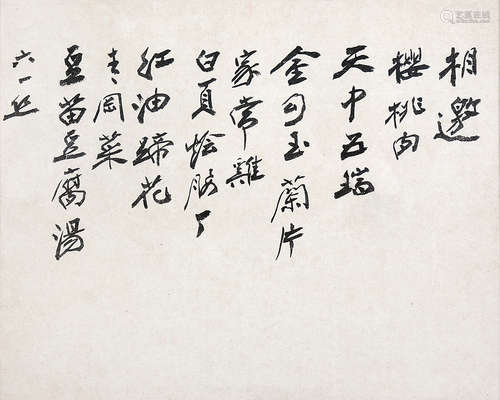 相邀
櫻桃肉
天中五瑞
金勾玉蘭片
家常雞
白頁燴丁
紅油蹄花
岡菜
豆苗豆腐湯
六一丝